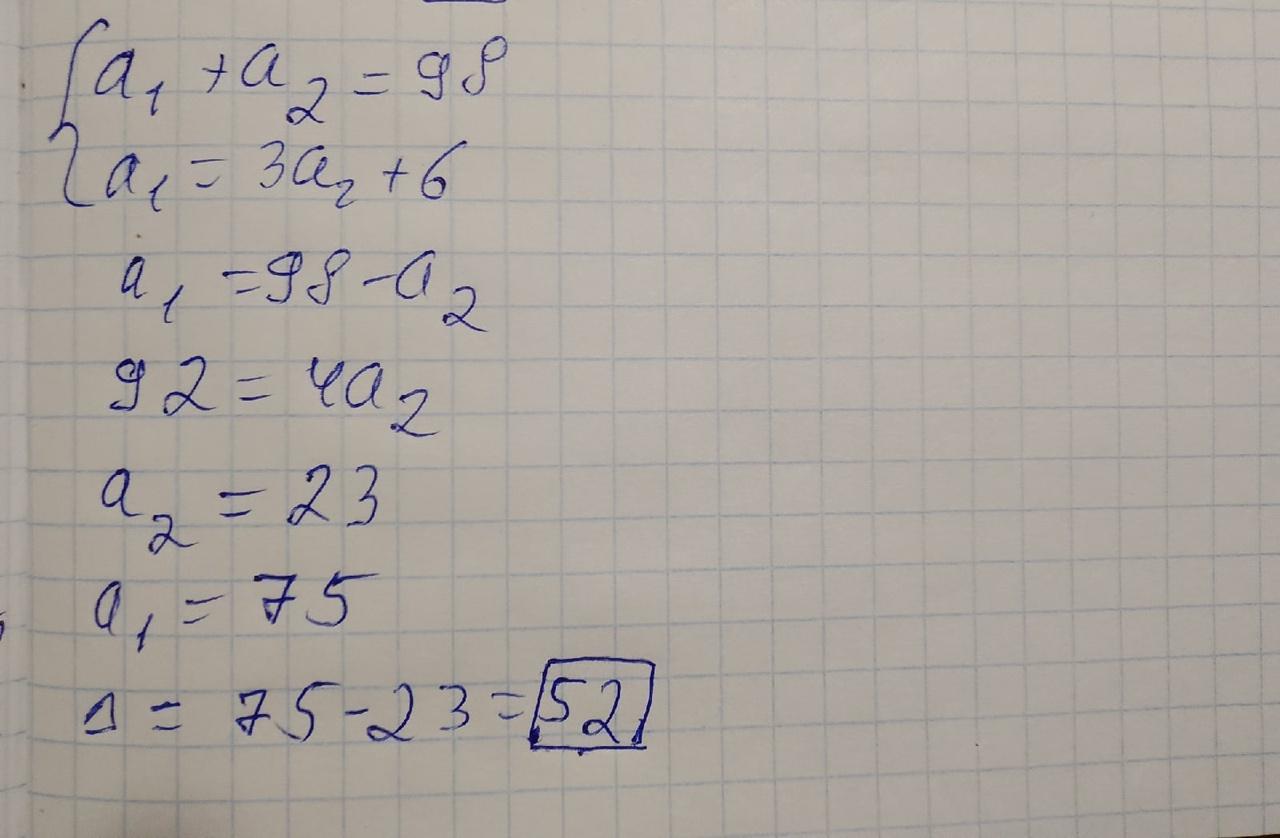 {a₁ + a₂ = 98
{a₁ = 3a₂ + 6
a₁ = 98 - a₂
92 = 4a₂
a₂ = 23
a₁ = 75
Δ = 75 - 23 = 52